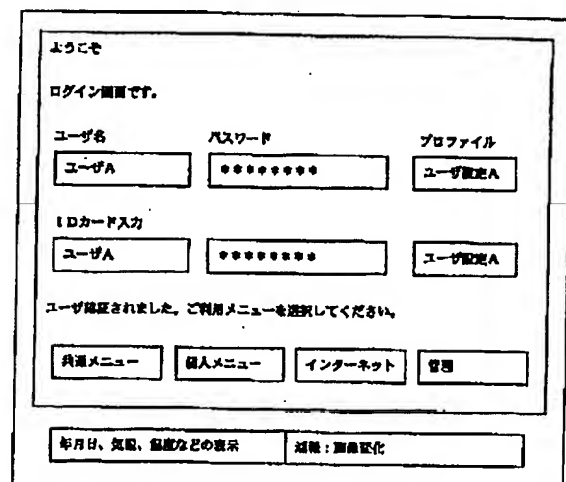 ようこそ
ログイン画面です。
ユーザ名 パスワード プロファイル
ユーザA ******** ユーザ設定A
IDカード入力
ユーザA ******** ユーザ設定A
ユーザ認証されました。ご利用メニューを選択してください。
共通メニュー 個人メニュー インターネット 管理
年月日、気温、湿度などの表示 :画像変化